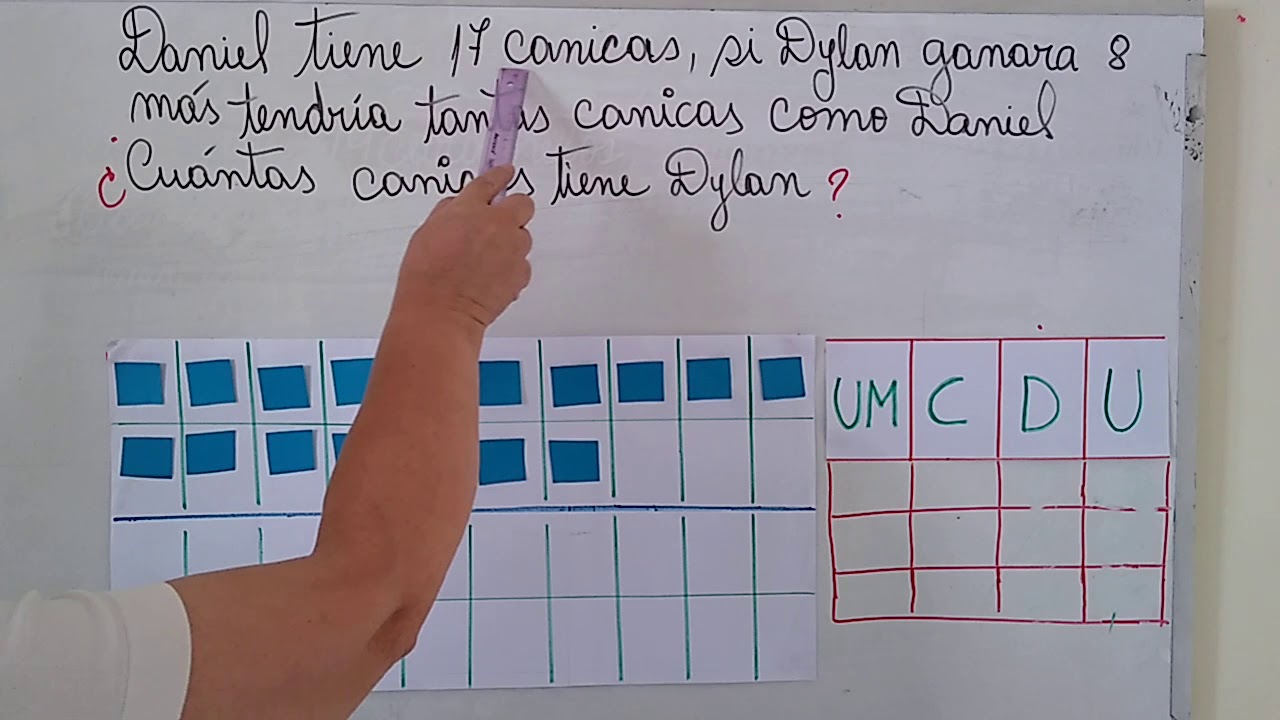 Daniel tiene 17 canicas, si Dylan ganara 8
más tendría tantas canicas como Daniel
¿Cuántas canicas tiene Dylan?
UM C D U